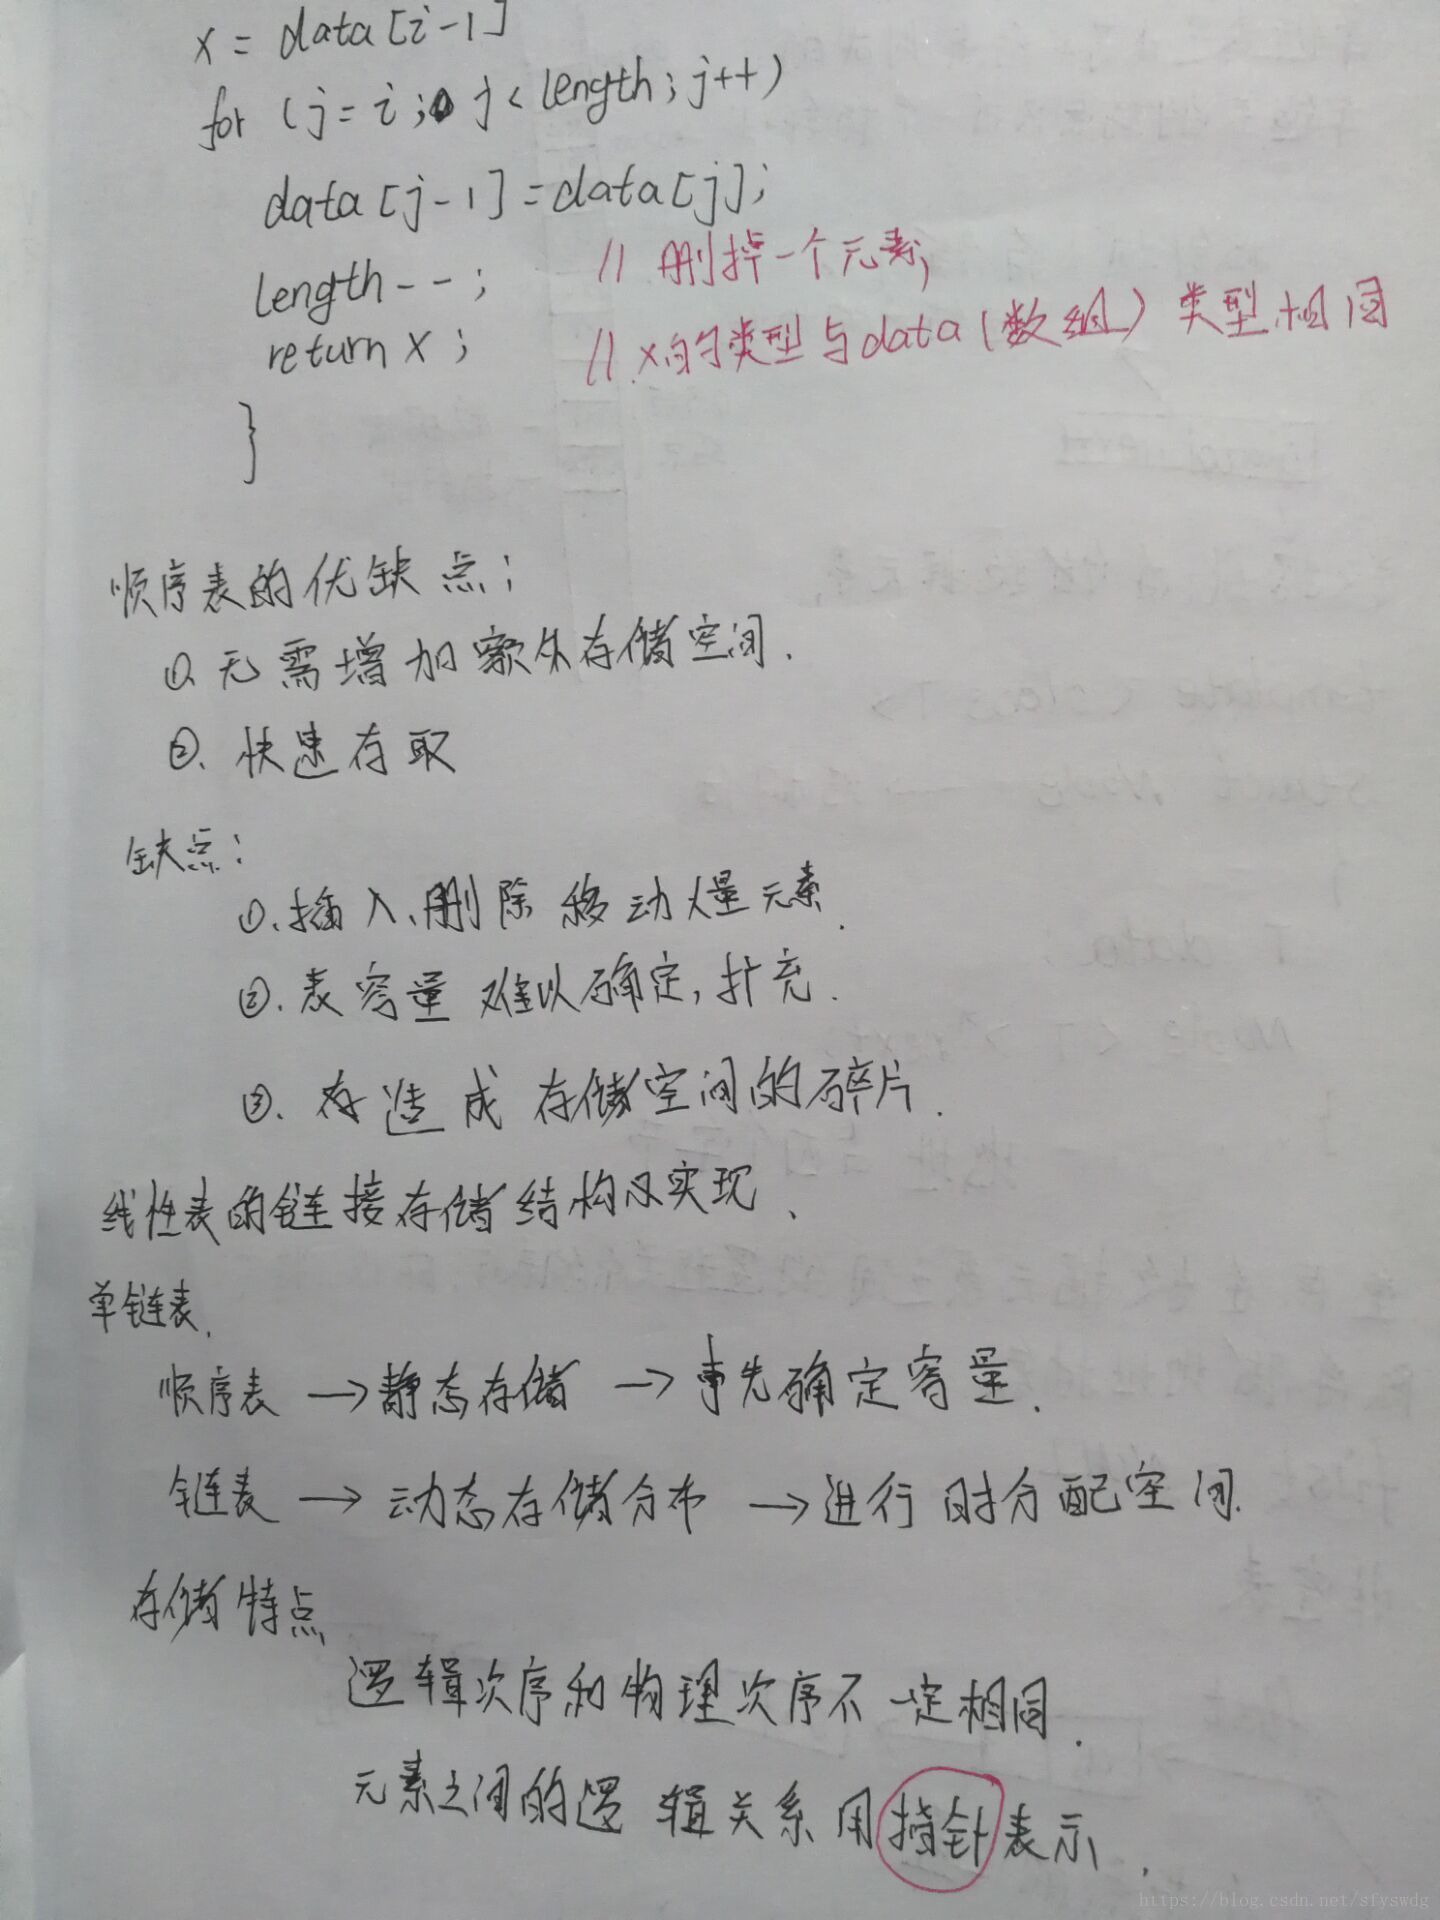 x = data[i-1]
for (j=i; j<length; j++)
data[j-1]=data[j];
length--; // 删掉一个元素;
return x; // x的类型与data(数组)类型相同
}
顺序表的优缺点;
①.无需增加额外存储空间.
②.快速存取
缺点:
①.插入、删除移动大量元素.
②.表容量难以确定,扩充.
③.存造成存储空间的碎片.
线性表的链接存储结构及实现、
单链表.
顺序表→静态存储→事先确定容量.
链表→动态存储分布→进行时分配空间.
存储特点
逻辑次序和物理次序不一定相同.
元素之间的逻辑关系用指针表示.
https://blog.csdn.net/sfyswdg